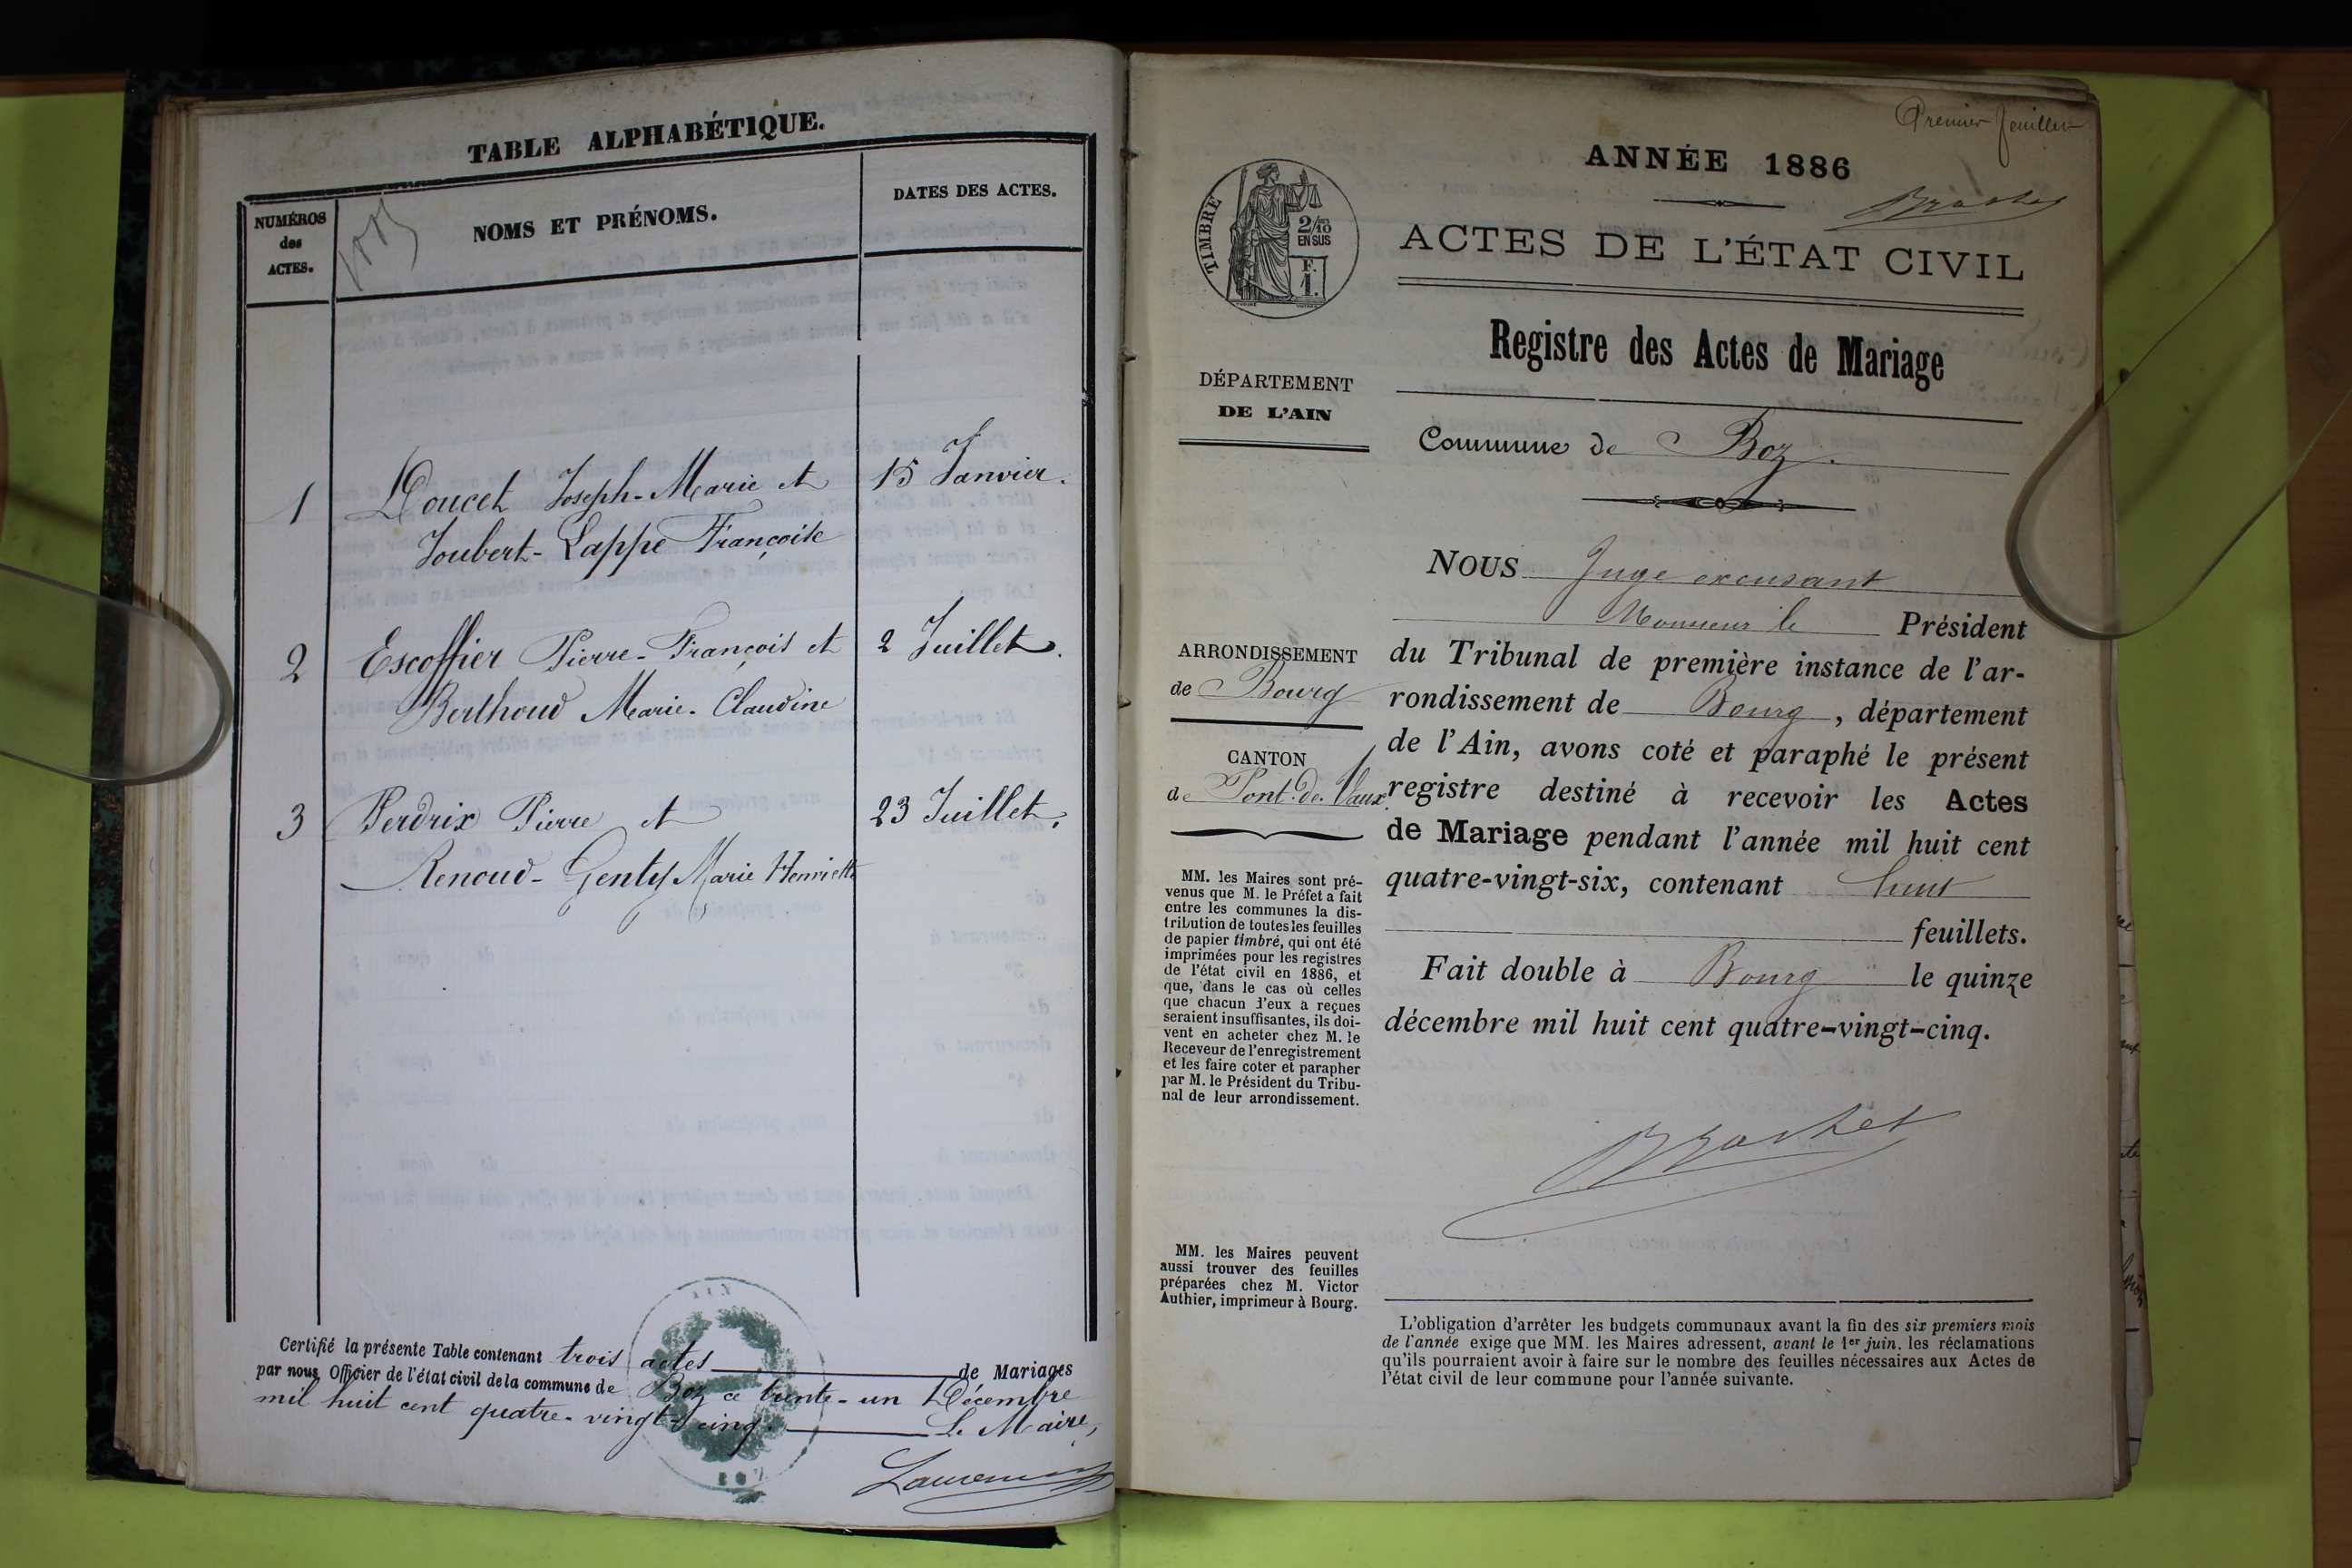 TABLE ALPHABÉTIQUE.
NUMÉROS
des
ACTES.
NOMS ET PRÉNOMS.
DATES DES ACTES.
1885
1 Doucet Joseph-Marie et 15 Janvier.
Joubert-Lappe Françoise
2 Escoffier Pierre-François et 2 Juillet.
Berthoud Marie-Claudine
3 Perdrix Pierre et 23 Juillet.
Renoud-Genty Marie Henriette
Certifié la présente Table contenant trois actes de Mariages
par nous Officier de l'état civil de la commune de Boz ce trente-un Décembre
mil huit cent quatre-vingt-cinq. Le Maire,
Premier feuillet
ANNÉE 1886
Brachet
ACTES DE L'ÉTAT CIVIL
Registre des Actes de Mariage
Commune de Boz.
TIMBRE
2/10
EN SUS
F.
1.
DÉPARTEMENT
DE L'AIN
ARRONDISSEMENT
de Bourg
CANTON
de Pont-de-Vaux
MM. les Maires sont pré-
venus que M. le Préfet a fait
entre les communes la dis-
tribution de toutes les feuilles
de papier timbré, qui ont été
imprimées pour les registres
de l'état civil en 1886, et
que, dans le cas où celles
que chacun d'eux a reçues
seraient insuffisantes, ils doi-
vent en acheter chez M. le
Receveur de l'enregistrement
et les faire coter et parapher
par M. le Président du Tribu-
nal de leur arrondissement.
MM. les Maires peuvent
aussi trouver des feuilles
préparées chez M. Victor
Authier, imprimeur à Bourg.
NOUS Juge excusant
Monsieur le Président
du Tribunal de première instance de l'ar-
rondissement de Bourg, département
de l'Ain, avons coté et paraphé le présent
registre destiné à recevoir les Actes
de Mariage pendant l'année mil huit cent
quatre-vingt-six, contenant huit
feuillets.
Fait double à Bourg le quinze
décembre mil huit cent quatre-vingt-cinq.
Brachet
L'obligation d'arrêter les budgets communaux avant la fin des six premiers mois
de l'année exige que MM. les Maires adressent, avant le 1er juin, les réclamations
qu'ils pourraient avoir à faire sur le nombre des feuilles nécessaires aux Actes de
l'état civil de leur commune pour l'année suivante.